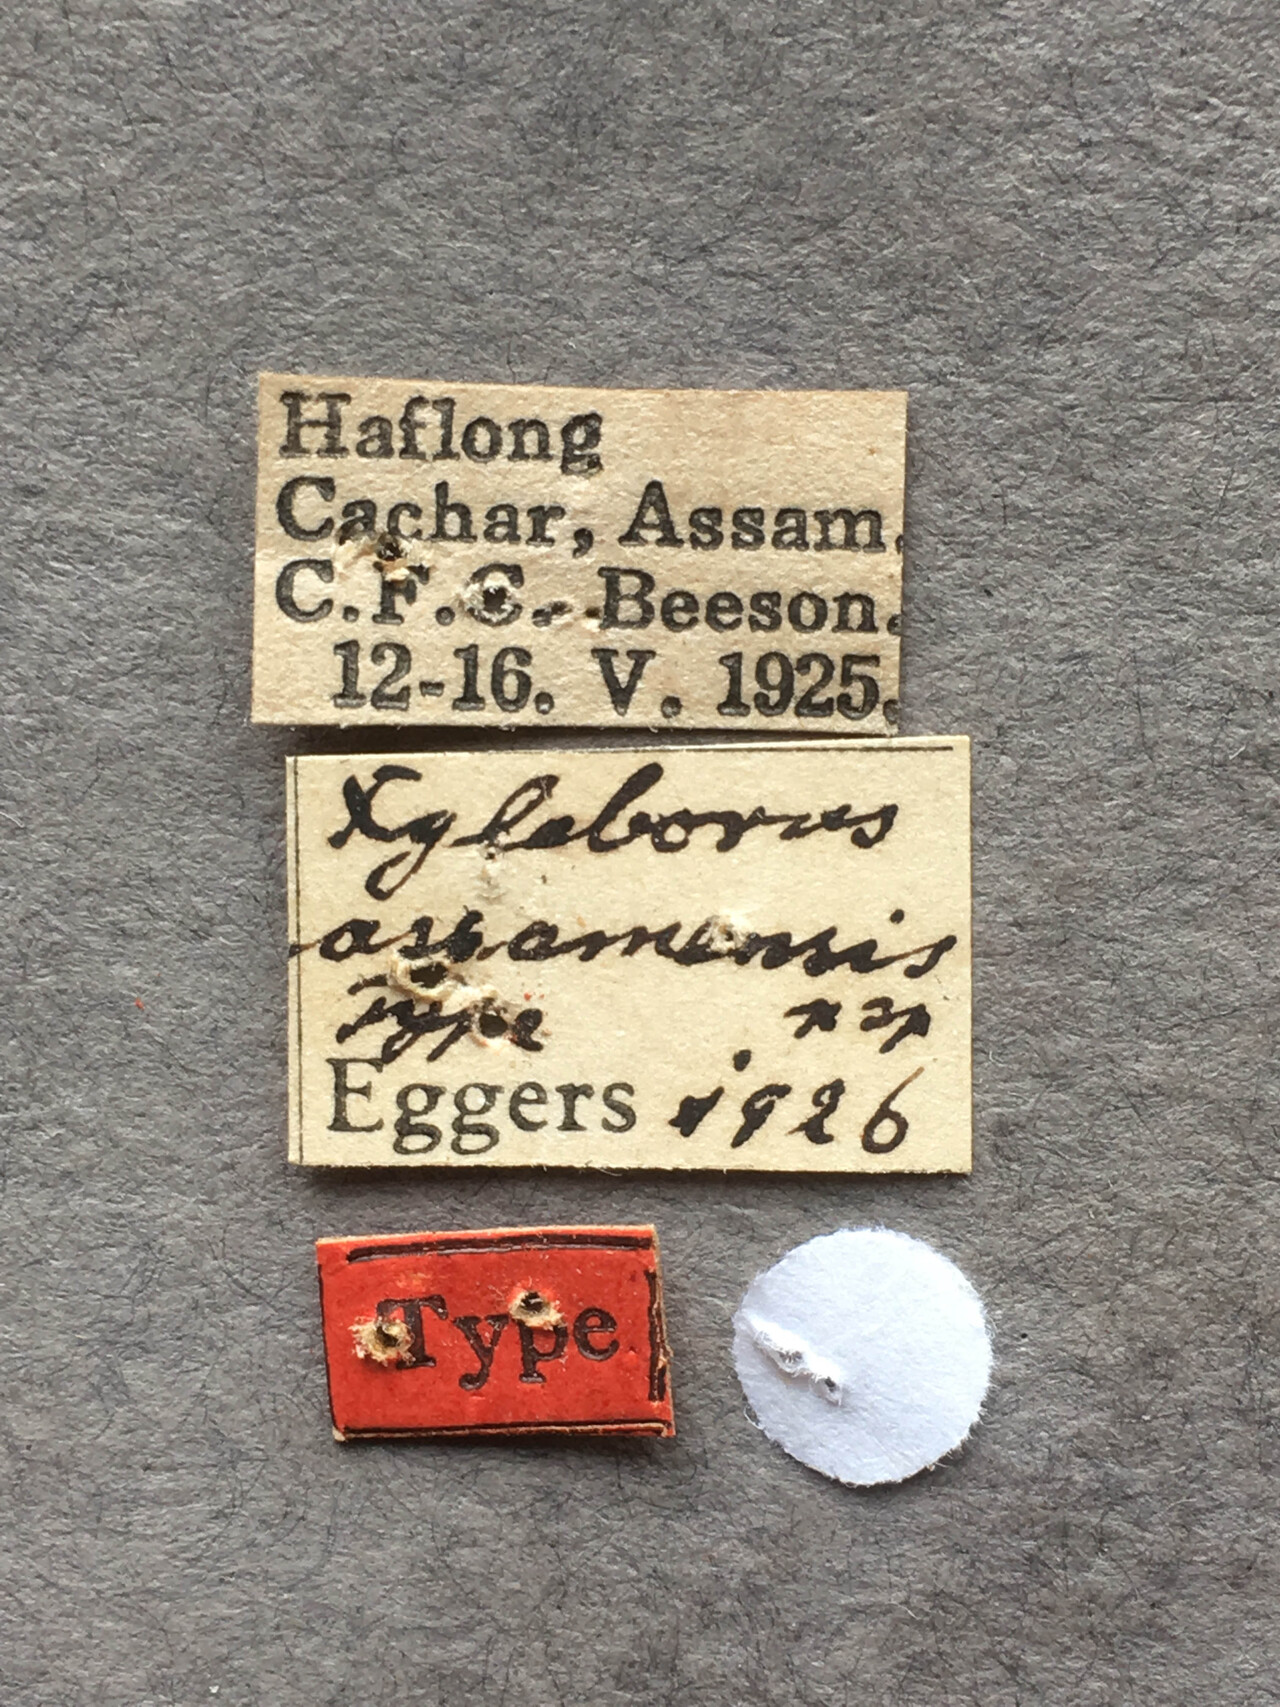 Haflong
Cachar, Assam.
C.F.C. Beeson.
12-16. V. 1925.
Xyleborus
assamensis
Type n sp
Eggers 1926
Type